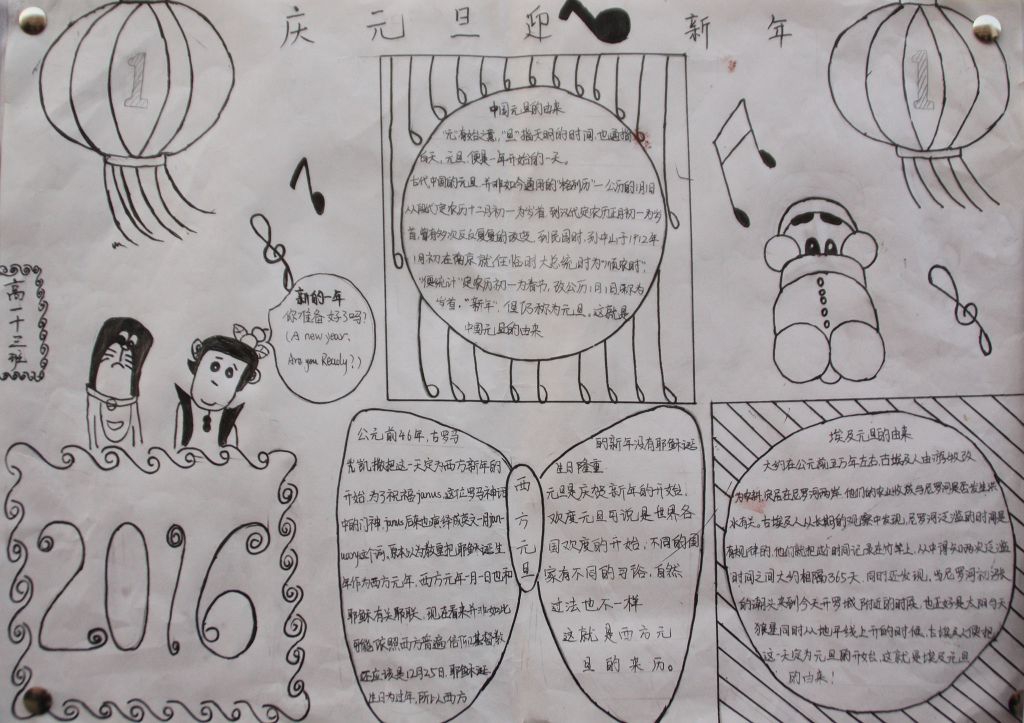 庆元旦迎新年
1
1
高一十三班
新的一年
你准备好了吗?
(A new year,
Are you Ready?)
2016
中国元旦的由来
"元"有始之意,"旦"指天明的时间,也通指
白天,元旦便是一年开始的一天。
古代中国的元旦并非如今通用的"格列历"一公历的1月1日
从殷代定农历十二月初一为岁首,到汉代定农历正月初一为岁
首,曾有多次反反复复的改变,到民国时,孙中山于1912年
1月初在南京就任临时大总统时为"顺农时",
"便统计"定农历初一为春节,改公历1月1日称为
岁首,"新年",但仍称为元旦。这就是
中国元旦的由来
西方元旦
公元前46年,古罗马
凯撒把这一天定为西方新年的
开始,为了祝福janus,这位罗马神话
中的门神,janus后来也演绎成英文一月jan-
uary这个词,原本以为教皇把耶稣诞生
年作为西方元年,西方元年一月一日也和
耶稣有关联,现在看来并非如此
可能依照西方普遍信仰基督教
还应该是12月25日,耶稣诞
生日为过年,所以西方
的新年没有耶稣诞
生日隆重
元旦是庆贺新年的开始,
欢度元旦可说是世界各
国欢度的开始,不同的国
家有不同的习俗,自然
过法也不一样
这就是西方元
旦的来历。
埃及元旦的由来
大约在公元前五万年左右,古埃及人由游牧改
为农耕,定居在尼罗河两岸,他们的农业收成与尼罗河是否发生洪
水有关,古埃及人从长期的观察中发现,尼罗河泛滥的时间是
有规律的,他们就把这时间记录在竹竿上,从中得知两次泛滥
时间之间大约相隔365天,同时还发现,当尼罗河初涨
的潮头来到今天开罗城附近的时候,也正好是太阳与天
狼星同时从地平线上升的时候,古埃及人便把
这一天定为元旦的开始,这就是埃及元旦
的由来!